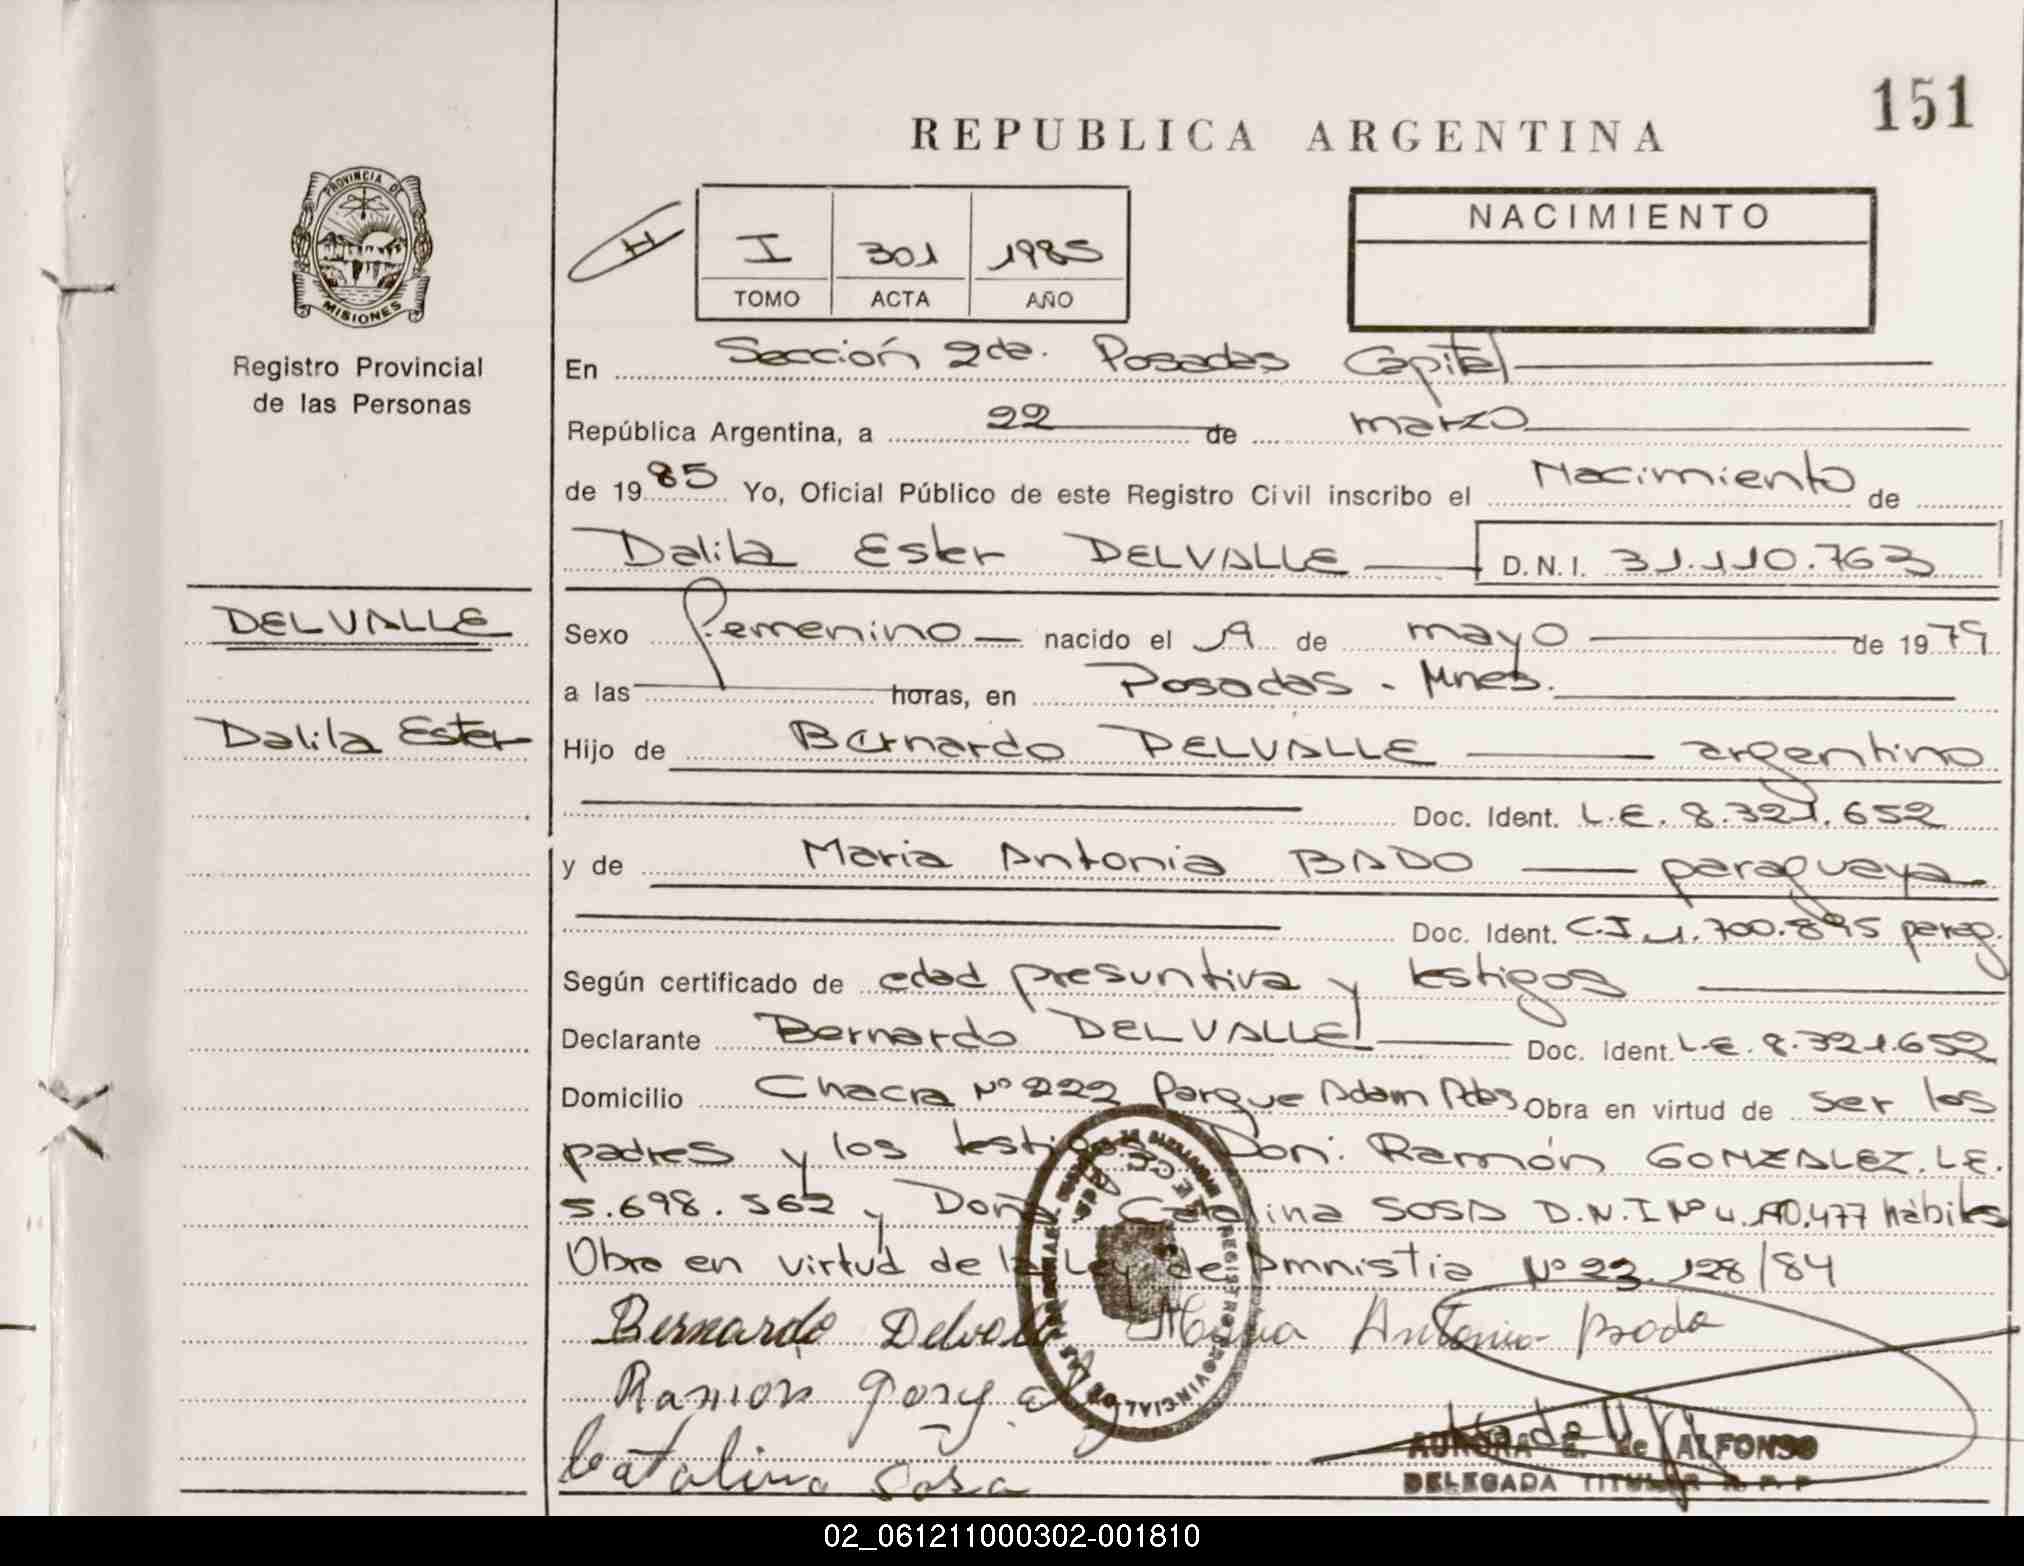 151
REPUBLICA ARGENTINA
PROVINCIA DE
MISIONES
Registro Provincial
de las Personas
H
I 301 1985
TOMO ACTA AÑO
NACIMIENTO
En Sección 2da. Posadas Capital
República Argentina, a 22 de marzo
de 1985 Yo, Oficial Público de este Registro Civil inscribo el Nacimiento de
Dalila Ester DELVALLE D.N.I. 31.110.763
DELVALLE
Dalila Ester
Sexo Femenino nacido el de mayo de 1979
a las horas, en Posadas - Mnes.
Hijo de Bernardo DELVALLE argentino
Doc. Ident. L.E. 8.321.652
y de Maria Antonia BADO paraguaya
Doc. Ident. C.I 1.700.895 parag.
Según certificado de edad presuntiva y testigos
Declarante Bernardo DELVALLE Doc. Ident. L.E. 8.321.652
Domicilio Chacra Nº 222 Parque Adam Pdas Obra en virtud de ser los
padres y los testigos Don: Ramón GONZALEZ. L.E.
5.698.562 y Doña Catalina SOSA D.N.I Nº hábiles
Obra en virtud de la Ley de Amnistia Nº 23.128/84
Bernardo Delvalle Maria Antonia Bado
Ramon
Catalina Sosa
REGISTRO PROVINCIAL DE LAS
AURORA E. de ALFONSO
DELEGADA TITULAR R. P. P.
02_061211000302-001810